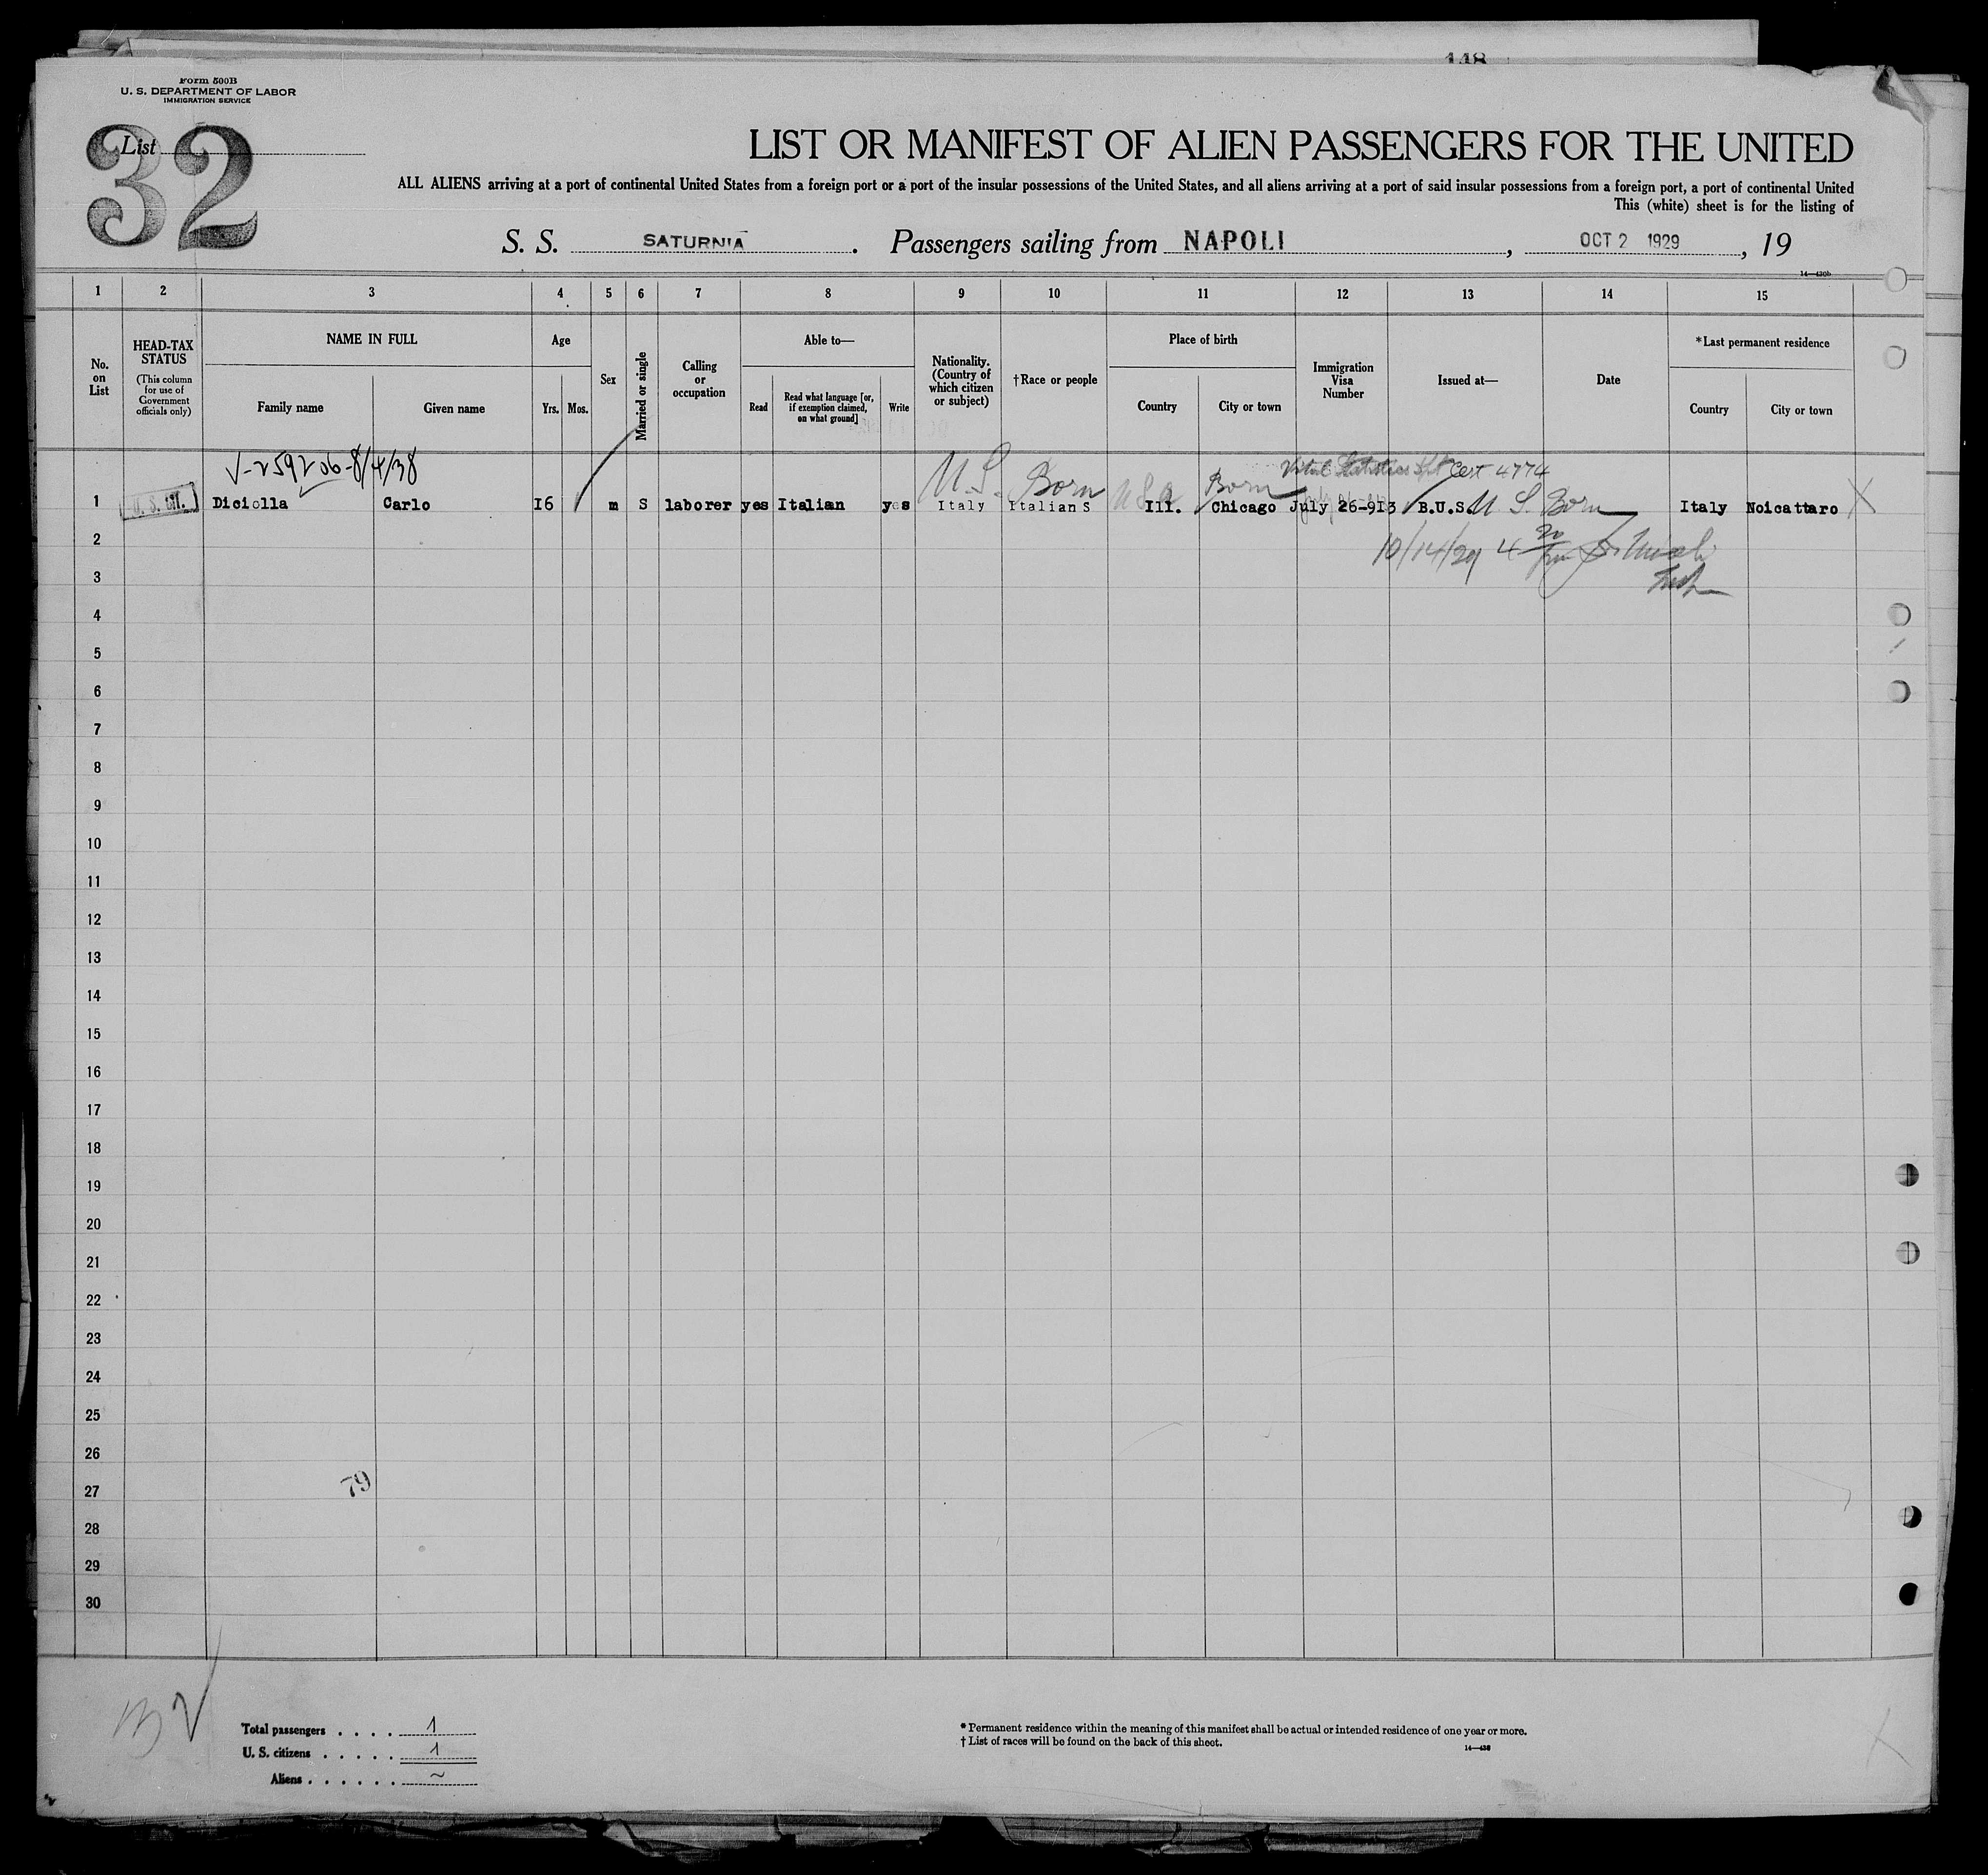 148
Form 500B
U. S. DEPARTMENT OF LABOR
IMMIGRATION SERVICE
List
32
LIST OR MANIFEST OF ALIEN PASSENGERS FOR THE UNITED
ALL ALIENS arriving at a port of continental United States from a foreign port or a port of the insular possessions of the United States, and all aliens arriving at a port of said insular possessions from a foreign port, a port of continental United
This (white) sheet is for the listing of
S. S. SATURNIA. Passengers sailing from NAPOLI, OCT 2 1929, 19
14—420b
1 2 3 4 5 6 7 8 9 10 11 12 13 14 15
No. on List
HEAD-TAX STATUS
(This column for use of Government officials only)
NAME IN FULL
Family name
Given name
Age
Yrs.
Mos.
Sex
Married or single
Calling or occupation
Able to—
Read
Read what language [or, if exemption claimed, on what ground]
Write
Nationality. (Country of which citizen or subject)
†Race or people
Place of birth
Country
City or town
Immigration Visa Number
Issued at—
Date
*Last permanent residence
Country
City or town
V-259206-8/4/38
U.S. Born
U S A
Born
Vital Statistics
Cert 4774
1 U.S. CIT. Diciolla Carlo I6 m S laborer yes Italian yes Italy Italian S Ill. Chicago July 26-913 B.U.S. U S Born Italy Noicattaro X
2
10/14/29 4 20
3
4
5
6
7
8
9
10
11
12
13
14
15
16
17
18
19
20
21
22
23
24
25
26
27
79
28
29
30
Total passengers . . . . 1
U. S. citizens . . . . . 1
Aliens . . . . . . ~
* Permanent residence within the meaning of this manifest shall be actual or intended residence of one year or more.
† List of races will be found on the back of this sheet.
14—438